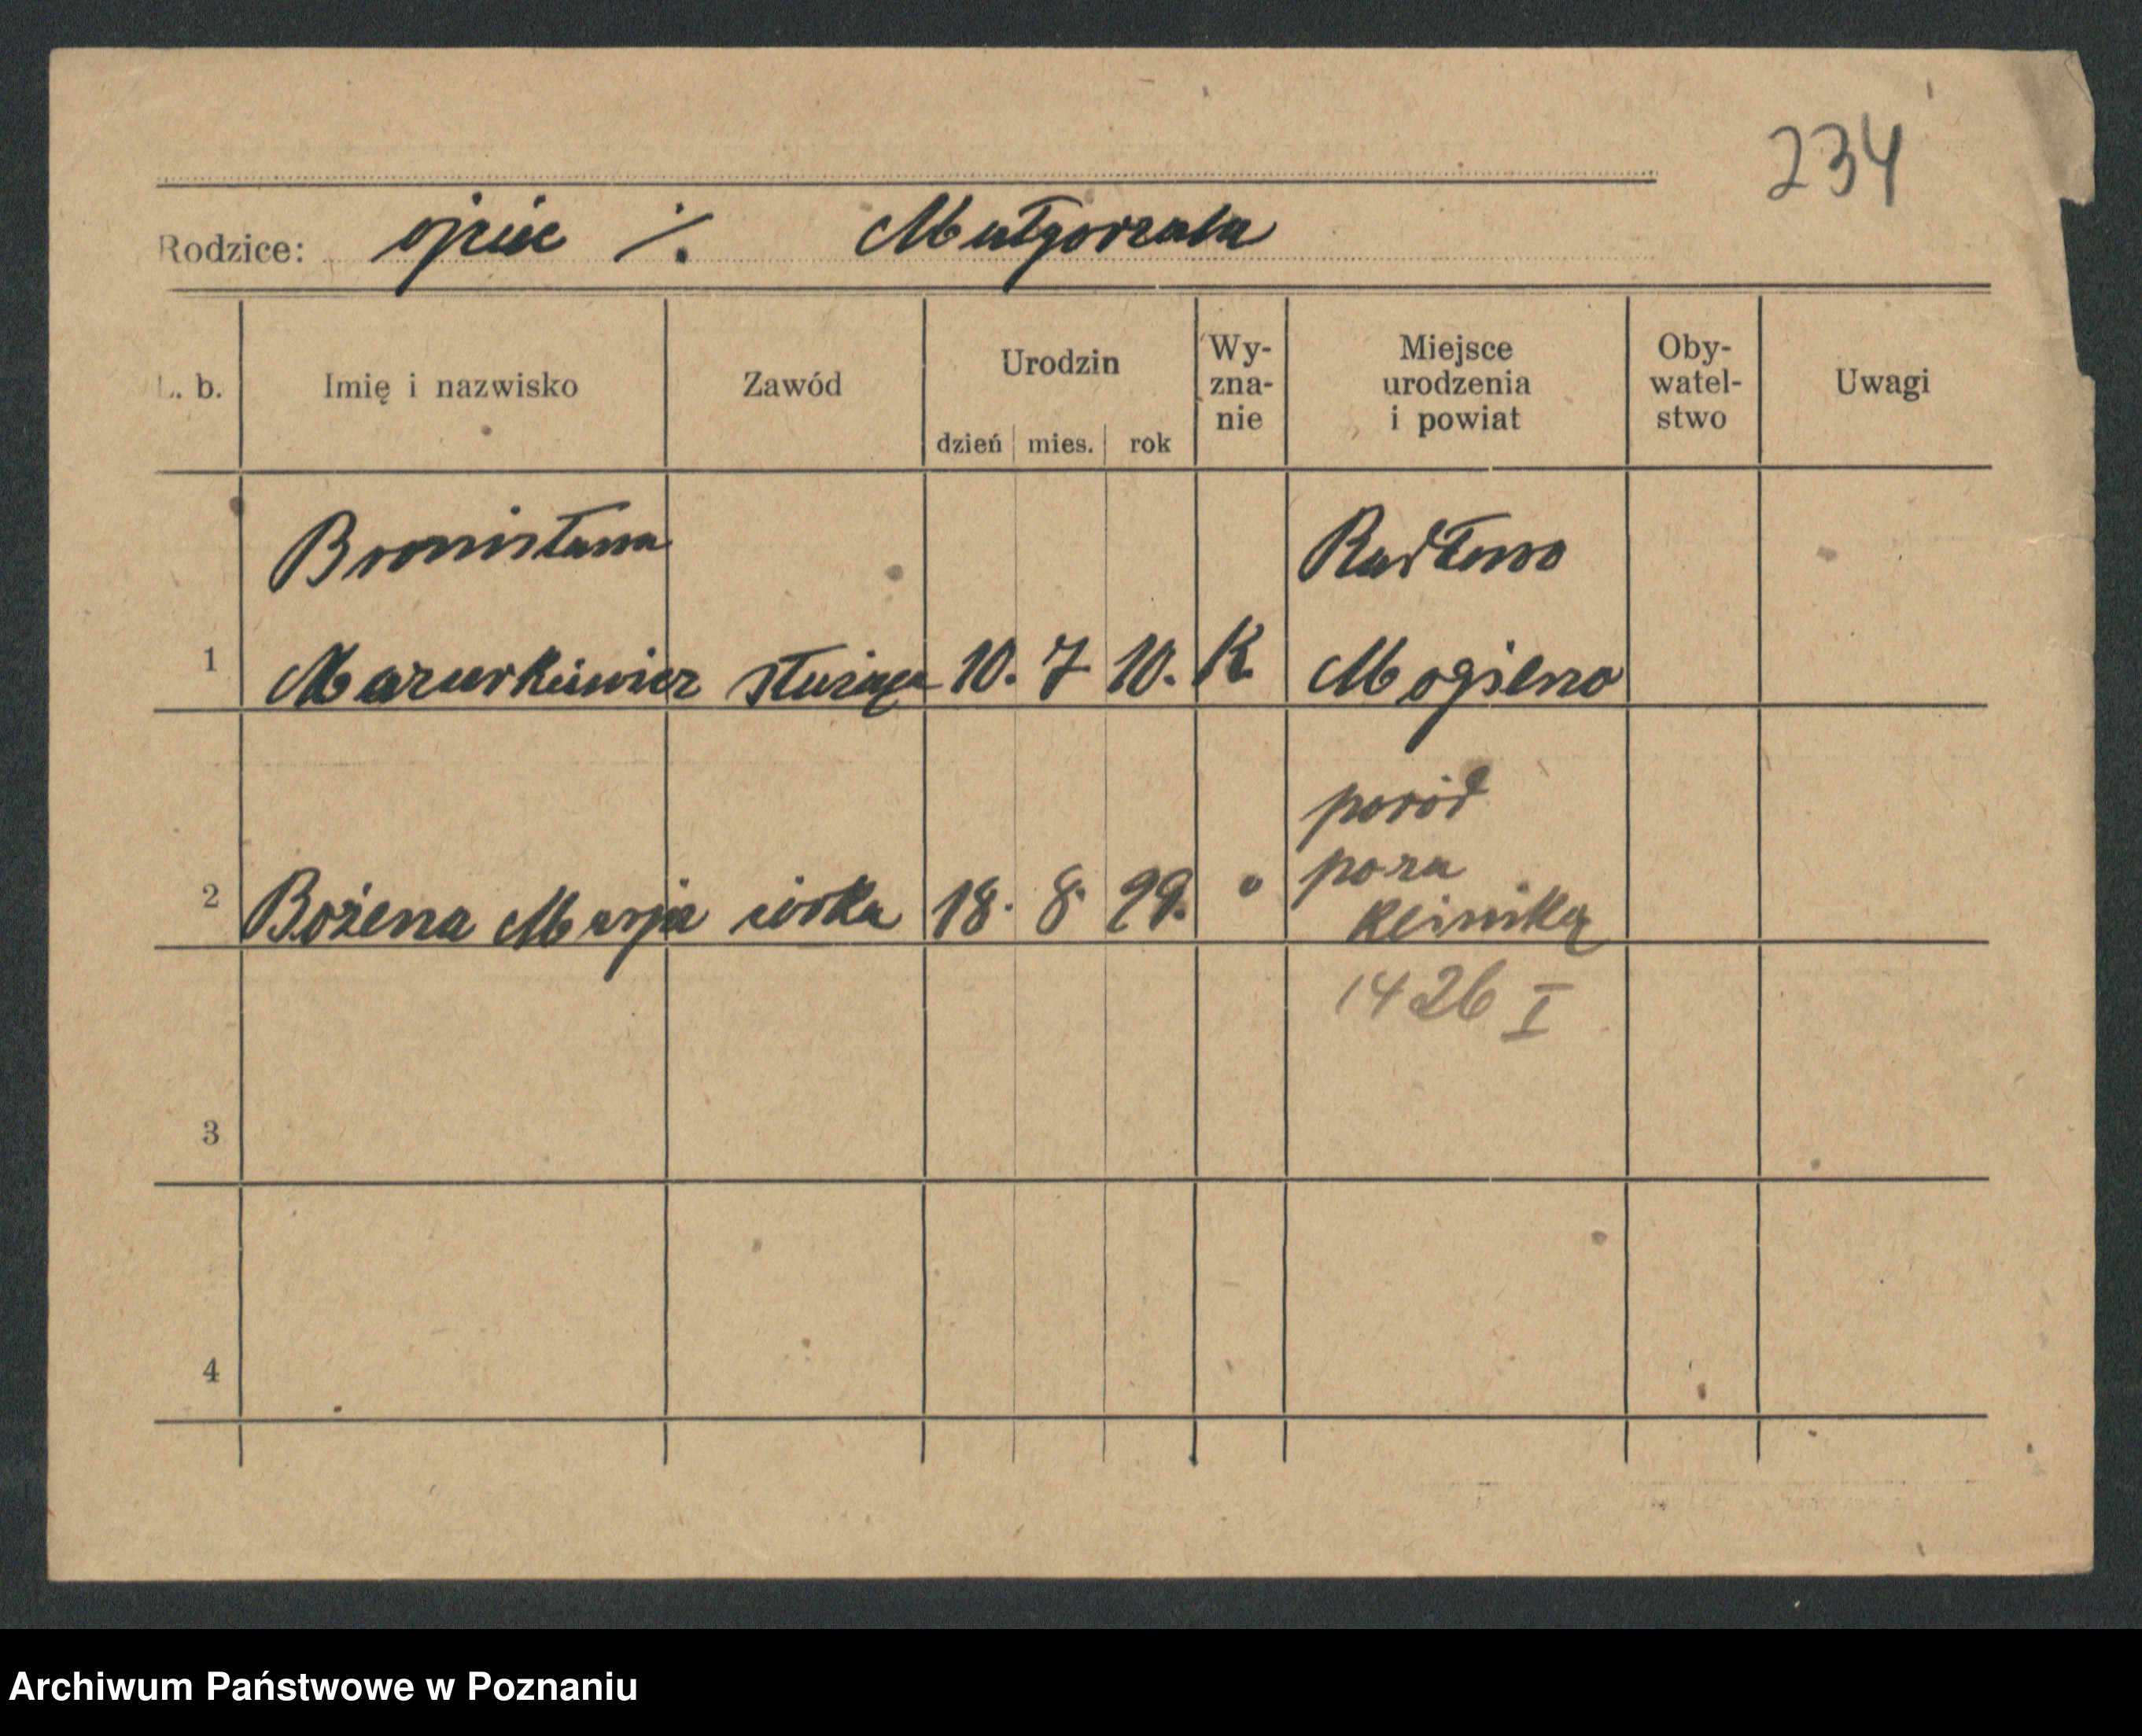 234
Rodzice: ojciec ·/. Małgorzata
L. b. Imię i nazwisko Zawód Urodzin dzień mies. rok Wy-zna-nie Miejsce urodzenia i powiat Oby-watel-stwo Uwagi
Bronisława Radłowo
1 Mazurkiewicz służąca 10. 7 10. K. Mogilno
poród
poza
2 Bożena Marja córka 18. 8. 29. " kliniką
1426 I
3
4
Archiwum Państwowe w Poznaniu